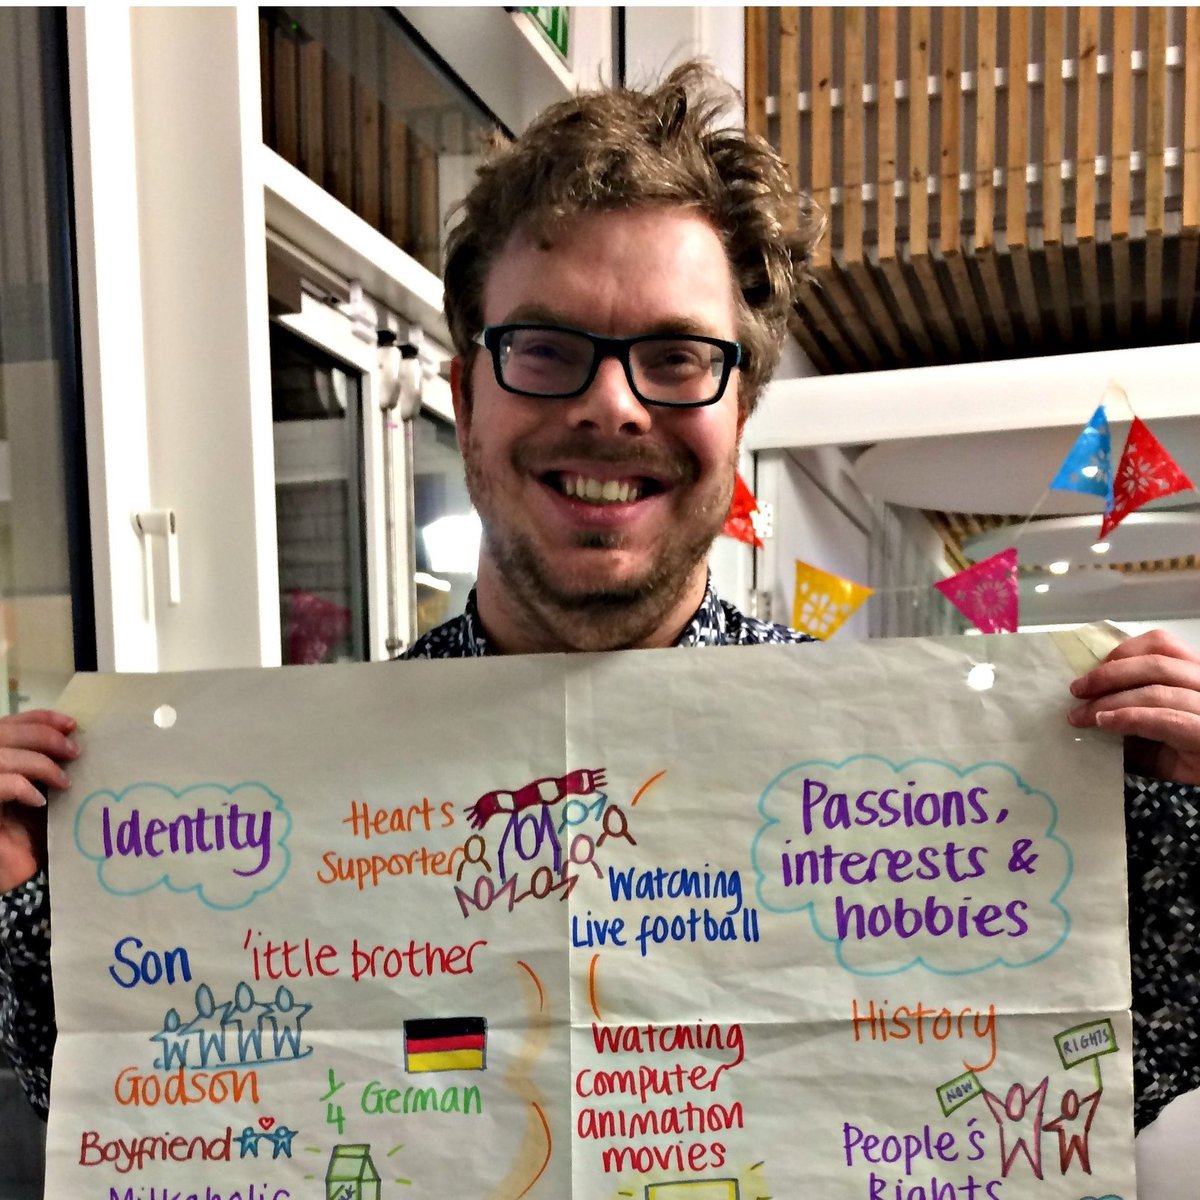 Identity
Hearts
Supporter
Son
'ittle brother
Godson
1/4 German
Boyfriend
Milkaholic
Watching
Live football
Watching
computer
animation
movies
Passions,
interests &
hobbies
History
NOW
RIGHTS
People's
Rights